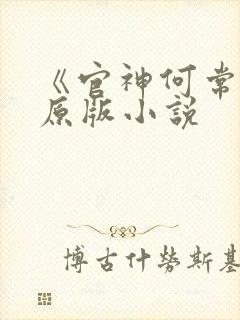 《官神何常
原版小說
博古什勞斯基